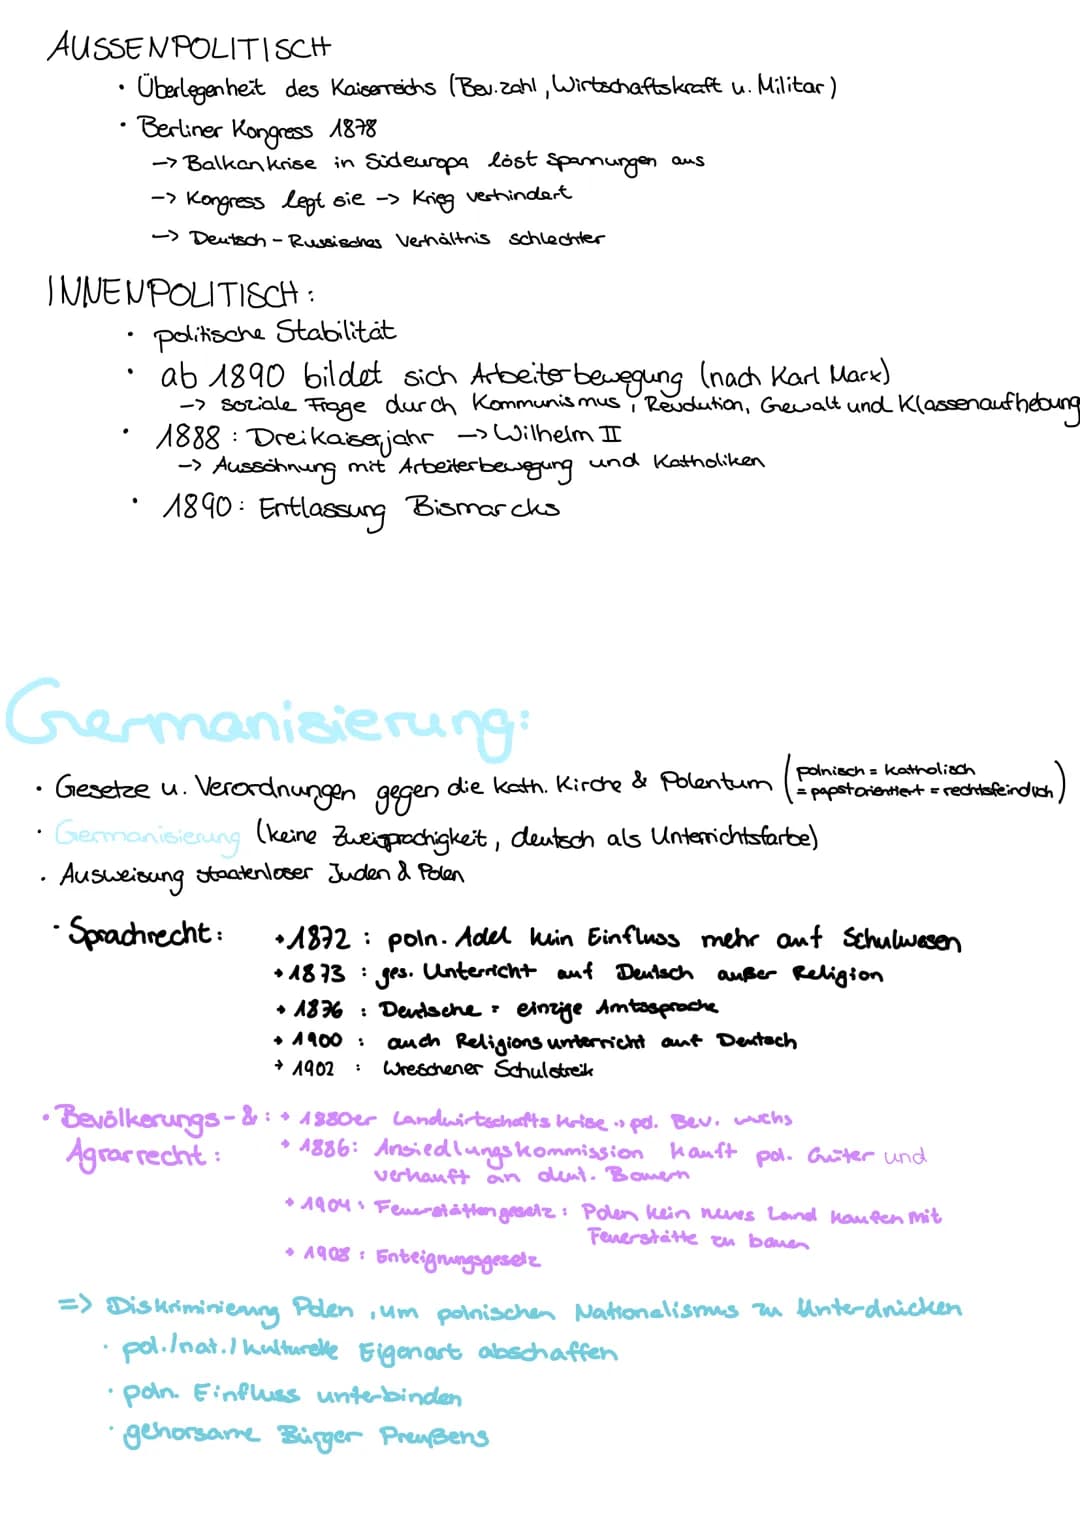 AUSSENPOLITISCH
· Überlegenheit des Kaiserreichs (Bev.zahl, Wirtschaftskraft u. Militär)
· Berliner Kongress 1878
-> Balkankrise in Südeuropa löst Spannungen aus
-> Kongress legt sie -> Krieg verhindert
-> Deutsch-Russisches Verhältnis schlechter
INNENPOLITISCH:
· politische Stabilität
· ab 1890 bildet sich Arbeiterbewegung (nach Karl Marx)
-> soziale Frage durch Kommunismus, Revolution, Gewalt und Klassenaufhebung
· 1888: Dreikaiserjahr -> Wilhelm II
-> Aussöhnung mit Arbeiterbewegung und Katholiken
· 1890: Entlassung Bismarcks
Germanisierung:
· Gesetze u. Verordnungen gegen die kath. Kirche & Polentum (polnisch = katholisch
= papstorientiert = rechtsfeindlich)
· Germanisierung (keine Zweisprachigkeit, deutsch als Unterrichtsfarbe)
· Ausweisung staatenloser Juden & Polen
· Sprachrecht: → 1872: poln. Adel kein Einfluss mehr auf Schulwesen
→ 1873: ges. Unterricht auf Deutsch außer Religion
→ 1876: Deutsche = einzige Amtssprache
→ 1900: auch Religionsunterricht auf Deutsch
→ 1902: Wreschener Schulstreik
· Bevölkerungs- &: → 1880er Landwirtschaftskrise → pol. Bev. wuchs
Agrarrecht: → 1886: Ansiedlungskommission kauft pol. Güter und
verkauft an deut. Bauern
→ 1904: Feuerstättengesetz: Polen kein neues Land kaufen mit
Feuerstätte zu bauen
→ 1908: Enteignungsgesetz
=> Diskriminierung Polen, um polnischen Nationalismus zu Unterdrücken
· pol./nat./kulturelle Eigenart abschaffen
· poln. Einfluss unterbinden
· gehorsame Bürger Preußens